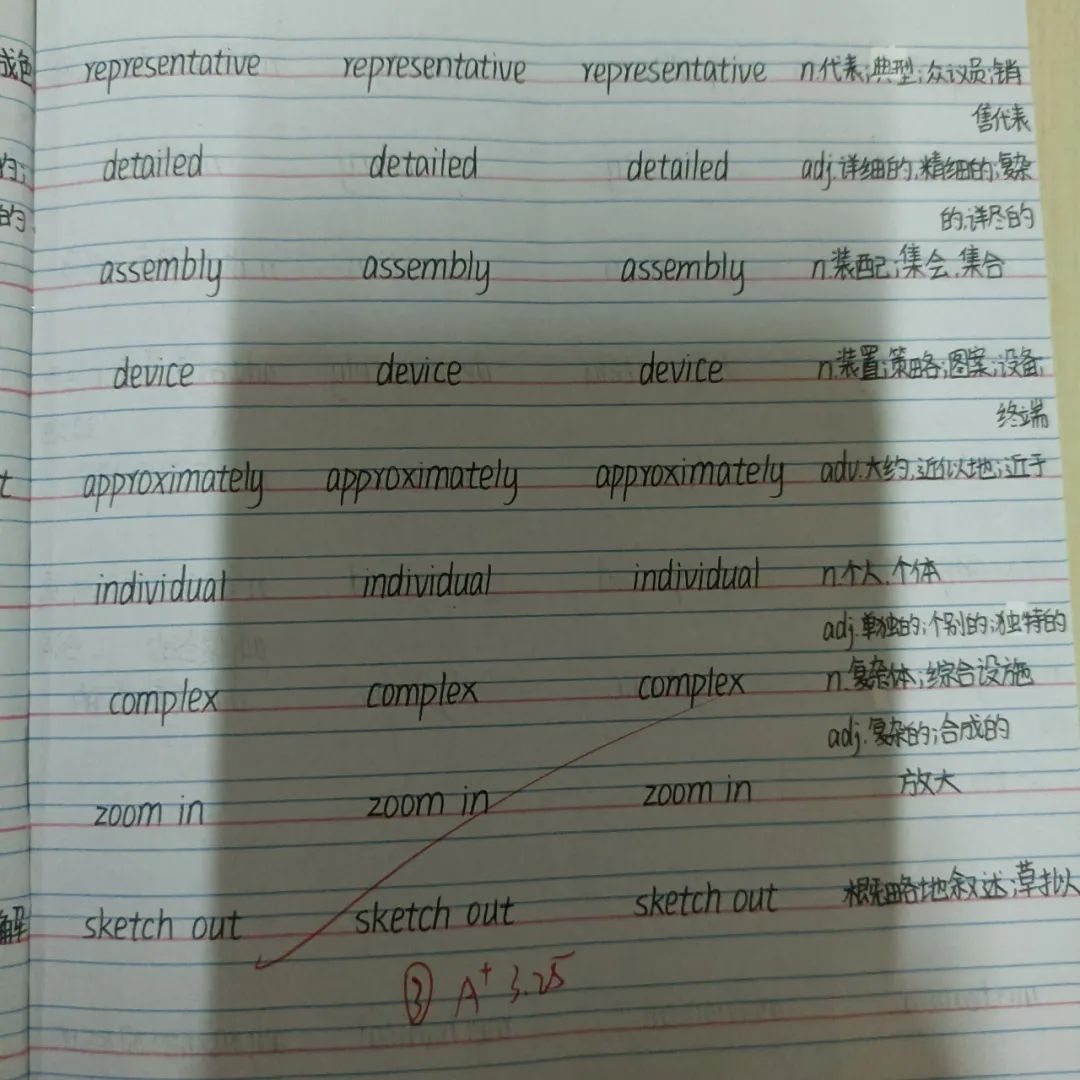 成色
representative representative representative n.代表;典型;众议员;销
售代表
的; detailed detailed detailed adj.详细的,精细的;复杂
的 的,详尽的
assembly assembly assembly n.装配;集会,集合
device device device n.装置;策略;图案;设备;
终端
t approximately approximately approximately adv.大约;近似地;近于
individual individual individual n.个人,个体
adj.单独的;个别的;独特的
complex complex complex n.复杂体;综合设施
adj.复杂的;合成的
zoom in zoom in zoom in 放大
解 sketch out sketch out sketch out 概略地叙述;草拟
③ A+ 3.25